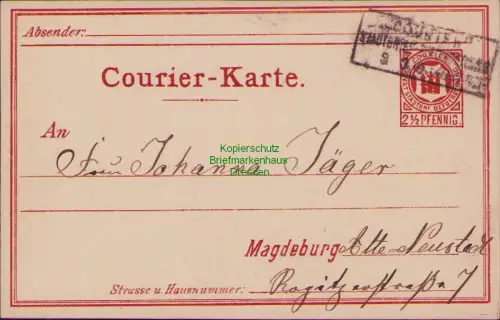 Absender:
COURIER
Courier-Karte.
2½ PFENNIG.
An
Frau Johanna Jäger
Kopierschutz
Briefmarkenhaus
Dresden
Magdeburg Alte-Neustadt
Strasse u. Hausnummer: Rogätzerstraße 7